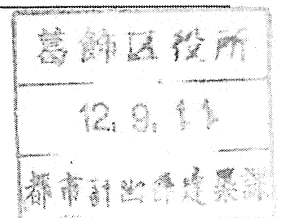 葛飾区役所
12. 9. 11
都市計画部建築課